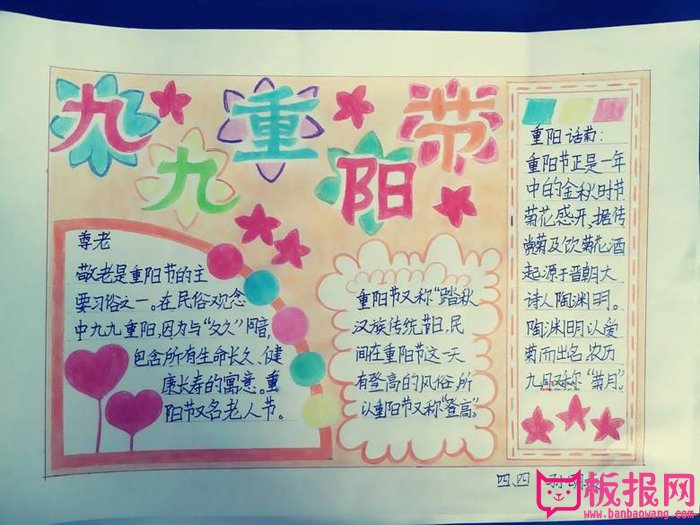 九九重阳节
尊老
敬老是重阳节的主
要习俗之一。在民俗观念
中九九重阳,因为与“久久”同音,
包含所有生命长久、健
康长寿的寓意。重
阳节又名老人节。
重阳节又称“踏秋
汉族传统节日,民
间在重阳节这一天
有登高的风俗,所
以重阳节又称“登高”。
重阳话菊:
重阳节正是一年
中的金秋时节
菊花盛开,据传
赏菊及饮菊花酒
起源于晋朝大
诗人陶渊明。
陶渊明以爱
菊而出名,农历
九月 称“菊月”。
四、四
板报网
www.banbaowang.com